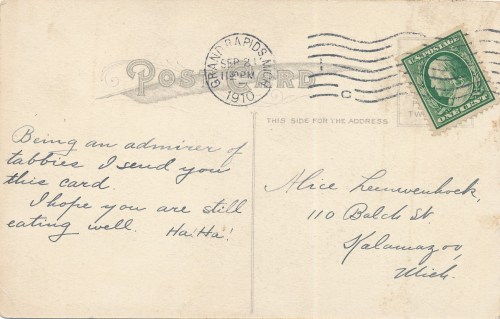 GRAND RAPIDS, MICH.
SEP 2
PM
1910
C
U.S. POSTAGE
ONE CENT
POST CARD
TWO
THIS SIDE FOR THE ADDRESS
Being an admirer of
tabbies I send you
this card.
I hope you are still
eating well. Ha! Ha!
Alice Leeuwenhoek,
110 Balch St.
Kalamazoo,
Mich.